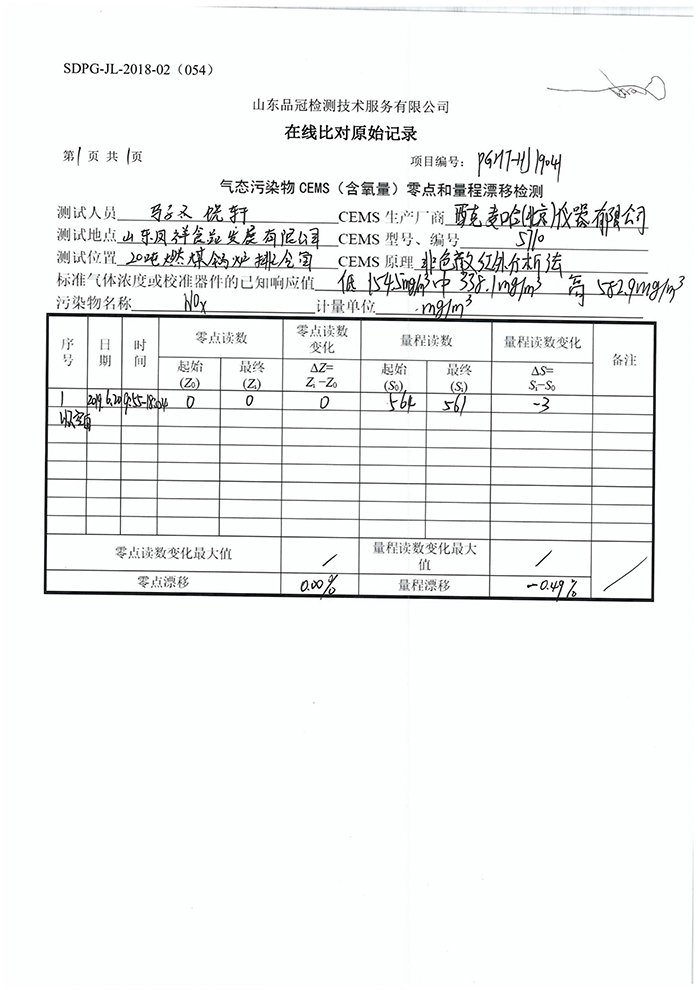 SDPG-JL-2018-02（054）
山东品冠检测技术服务有限公司
在线比对原始记录
第1页 共1页 项目编号：PGHT-HJ19041
气态污染物 CEMS（含氧量）零点和量程漂移检测
测试人员 CEMS 生产厂商 西克麦哈克(北京)仪器有限公司
测试地点 山东凤祥食品发展有限公司 CEMS 型号、编号 S710
测试位置 20吨燃煤锅炉排仓筒 CEMS 原理 非色散红外分析法
标准气体浓度或校准器件的已知响应值 低 154.5mg/m³ 中 338.1mg/m³ 高 582.9mg/m³
污染物名称 NOx 计量单位 mg/m³
序号 日期 时间 零点读数 零点读数变化 量程读数 量程读数变化 备注
起始(Z₀) 最终(Zᵢ) ΔZ=Zᵢ-Z₀ 起始(S₀) 最终(Sᵢ) ΔS=Sᵢ-S₀
1 2019.6.20 0 0 0 564 561 -3
以下空白
零点读数变化最大值 / 量程读数变化最大值 / /
零点漂移 0.00% 量程漂移 -0.49%